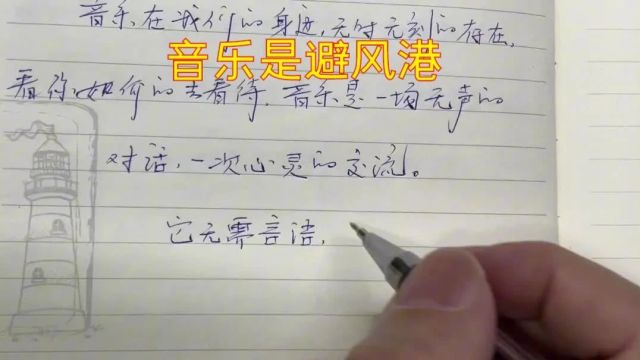 音乐在我们的身边,无时无刻的存在,
音乐是避风港
看你如何的去看待.音乐是一场无声的
对话,一次心灵的交流。
它无需言语,